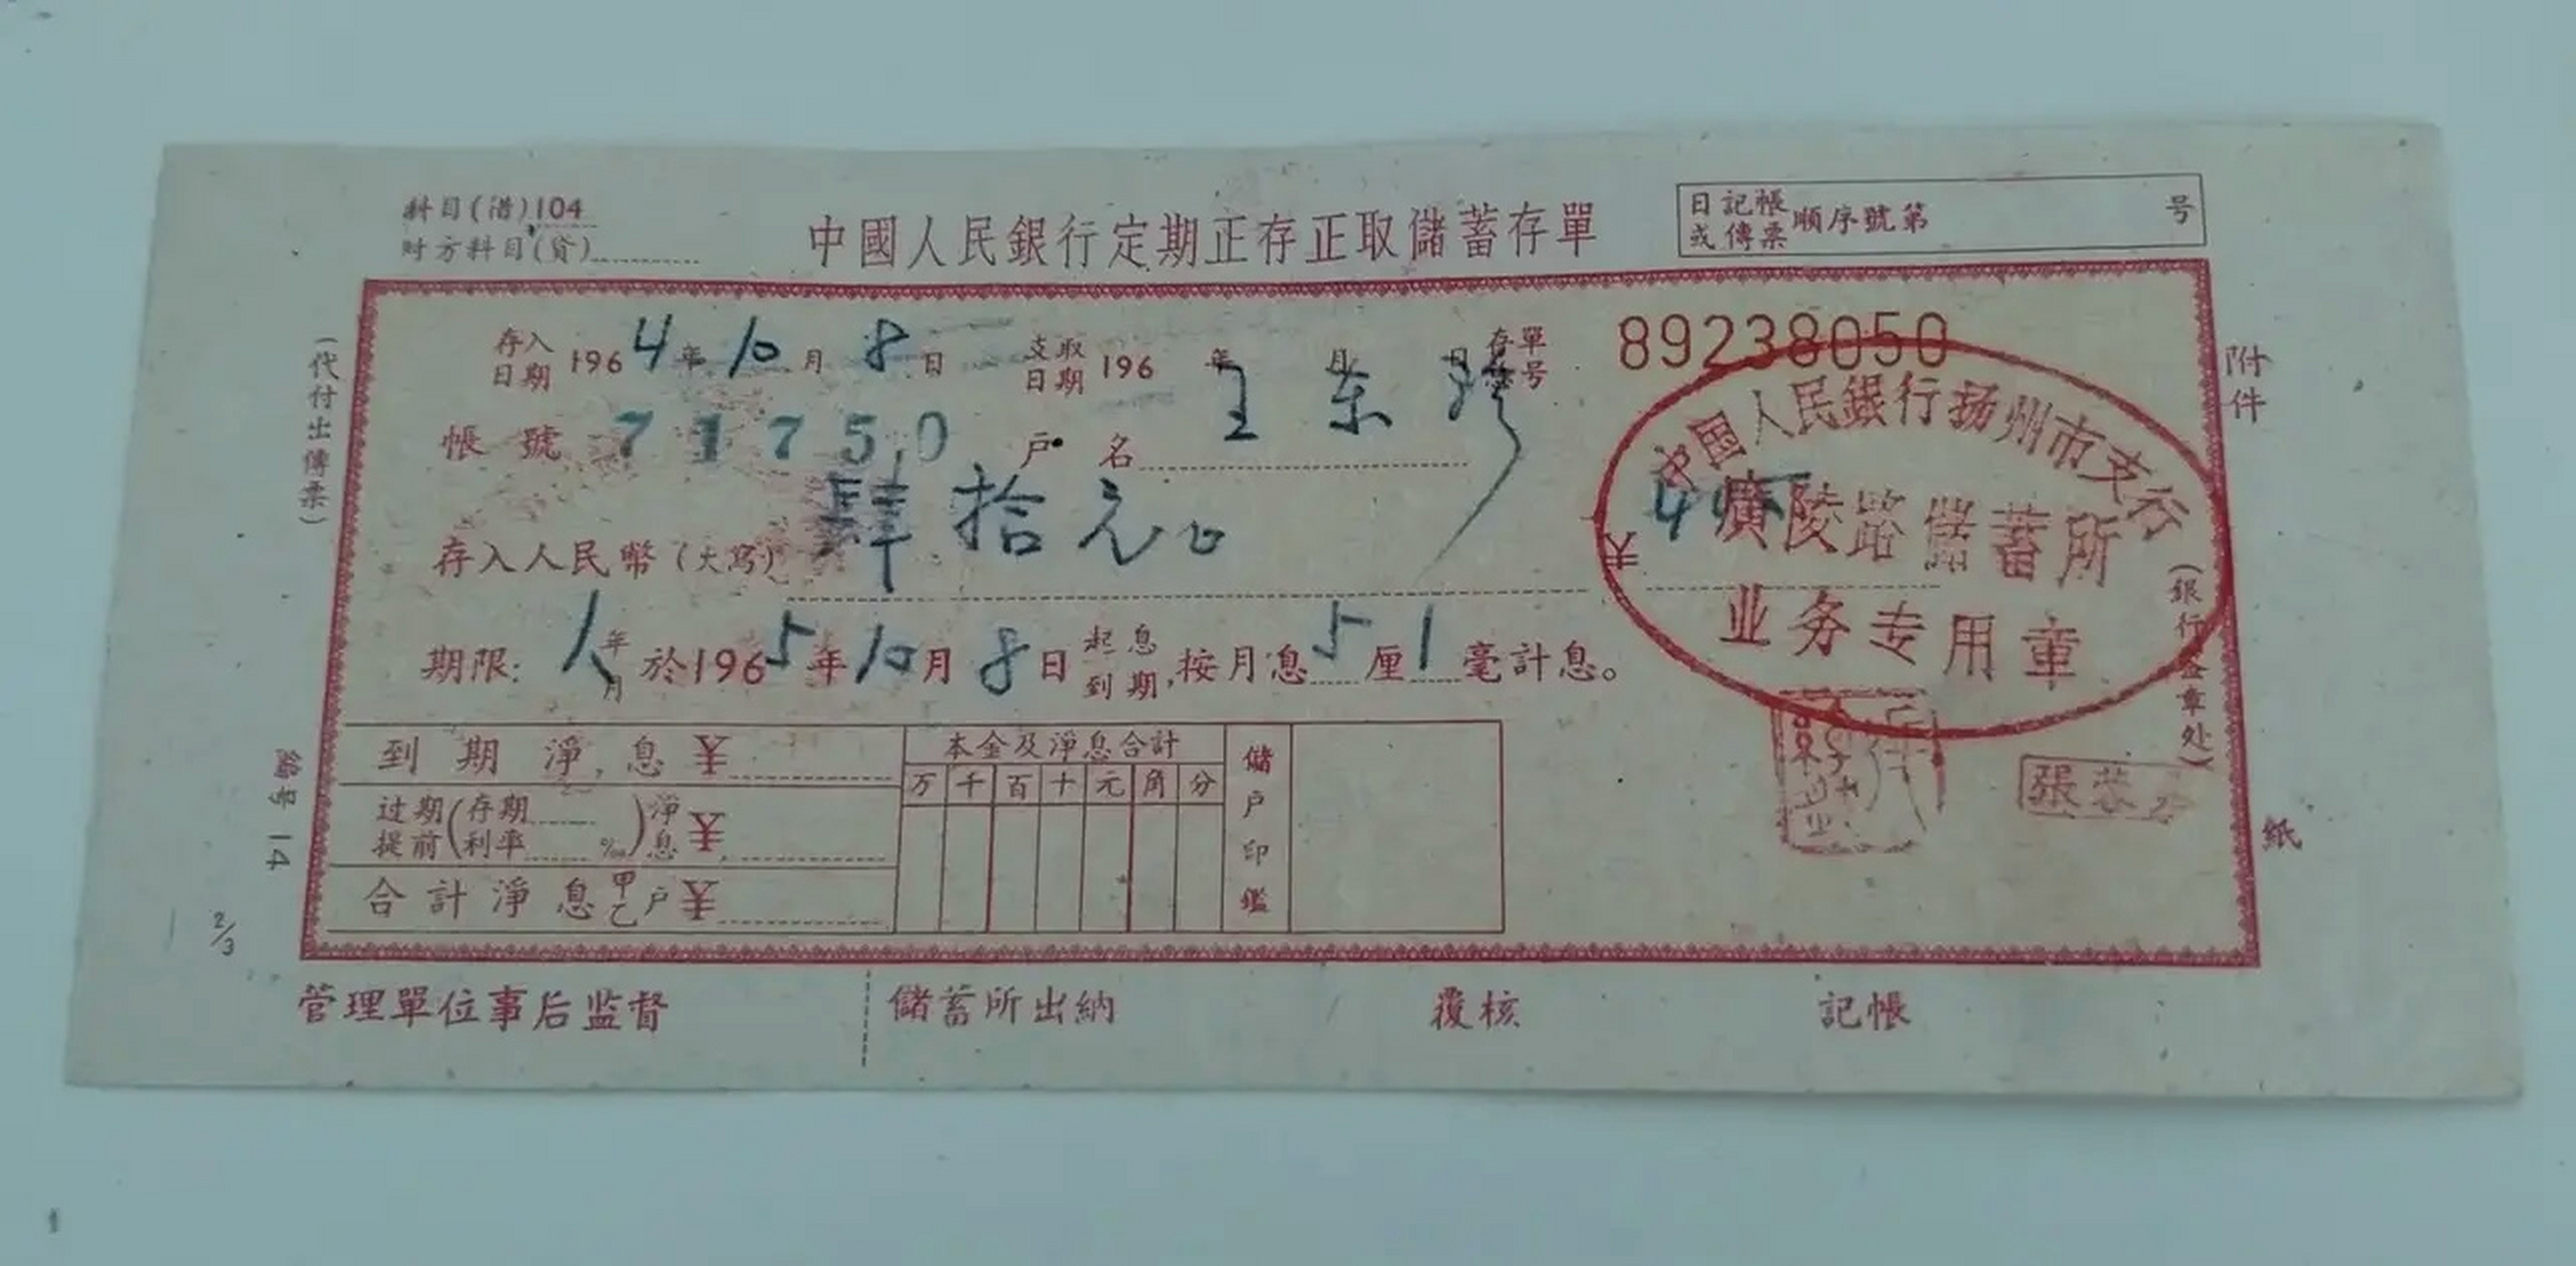 科目(借)104
对方科目(貸)
中國人民銀行定期正存正取儲蓄存單
日記帳或傳票順序號第 号
(代付出傳票)
存入日期 1964年10月8日 支取日期 196 年 月 日 存單号 89238050
帳號 71750 户名 王
存入人民幣(大寫) 肆拾元
期限: 1年 月 於1965年10月8日起息到期,按月息5厘1毫計息。
中国人民銀行扬州市支行
廣陵路儲蓄所
业务专用章
(銀行签章处)
附件
紙
到期淨息¥
过期提前(存期 利率 ‰)淨息¥
合計淨息甲乙户¥
本金及淨息合計
万 千 百 十 元 角 分
儲户印鑑
張
編号 14
2/3
管理單位事后监督
儲蓄所出納
覆核
記帳